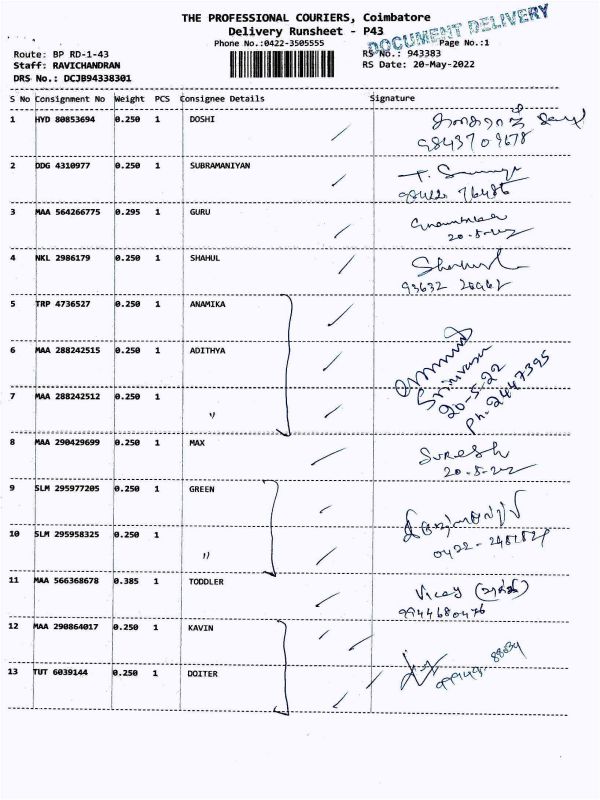 THE PROFESSIONAL COURIERS, Coimbatore
Delivery Runsheet - P43
DOCUMENT DELIVERY
Phone No.:0422-3505555
Page No.:1
Route: BP RD-1-43
RS No.: 943383
Staff: RAVICHANDRAN
RS Date: 20-May-2022
DRS No.: DCJB94338301
S No Consignment No Weight PCS Consignee Details Signature
1 HYD 80853694 0.250 1 DOSHI
2 DDG 4310977 0.250 1 SUBRAMANIYAN
3 MAA 564266775 0.295 1 GURU
20-5-22
4 NKL 2986179 0.250 1 SHAHUL
93632
5 TRP 4736527 0.250 1 ANAMIKA
6 MAA 288242515 0.250 1 ADITHYA
Srinivasa
20-5-22
Ph-2447395
7 MAA 288242512 0.250 1 "
8 MAA 290429699 0.250 1 MAX
SURESH
20-5-22
9 SLM 295977205 0.250 1 GREEN
10 SLM 295958325 0.250 1 "
0422-
11 MAA 566368678 0.385 1 TODDLER
Vijay
9944680476
12 MAA 290864017 0.250 1 KAVIN
13 TUT 6039144 0.250 1 DOITER